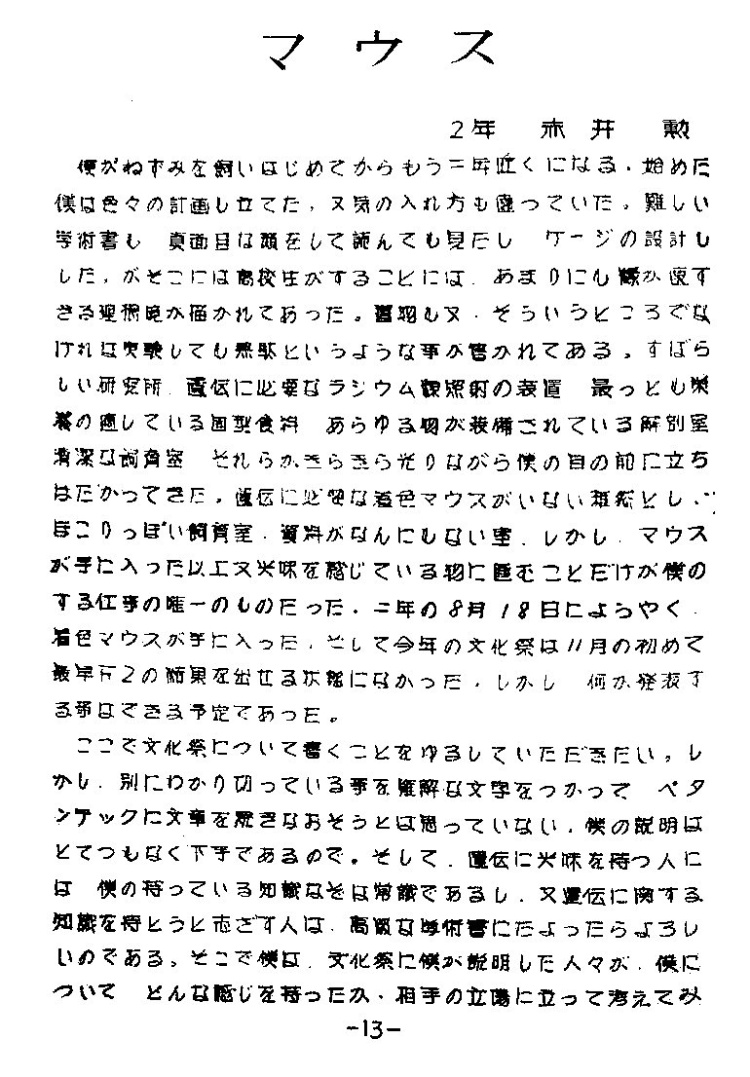 マウス
2年 赤井 勲
僕がねずみを飼いはじめてからもう二年近くになる．始めた
僕は色々の計画も立てた，又気の入れ方も違っていた。難しい
学術書も 真面目な顔をして読んでも見たし ケージの設計も
した，がそこには高校生がすることには，あまりにも
が描かれてあった。書物も又，そういうところでな
ければ実験しても無駄というような事が書かれてある。すばら
しい研究所，遺伝に必要なラジウム 照射の装置 最っとも栄
養の適している固型食料 あらゆる物が装備されている解剖室
清潔な飼育室 それらがきらきら光りながら僕の目の前に立ち
はだかってきた，遺伝に必要な着色マウスがいない 
ほこりっぽい飼育室，資料がなんにもない室，しかし，マウス
が手に入った以上又興味を感じている物に進むことだけが僕の
する仕事の唯一のものだった．二年の8月18日にようやく，
着色マウスが手に入った，そして今年の文化祭は11月の初めで
最早F2の結果を出せる状態になかった．しかし 何か発表す
る事はできる予定であった。
ここで文化祭について書くことをゆるしていただきたい。し
かし，別にわかり切っている事を難解な文字をつかって ペダ
ンテックに文章を焼きなおそうとは思っていない．僕の説明は
とてつもなく下手であるので。そして，遺伝に興味を持つ人に
は 僕の持っている知識なぞは常識であるし，又遺伝に関する
知識を持とうと志ざす人は，高級な学術書にたよったらよろし
いのである。そこで僕は，文化祭に僕が説明した人々が，僕に
ついて どんな感じを持ったか，相手の立場に立って考えてみ
-13-